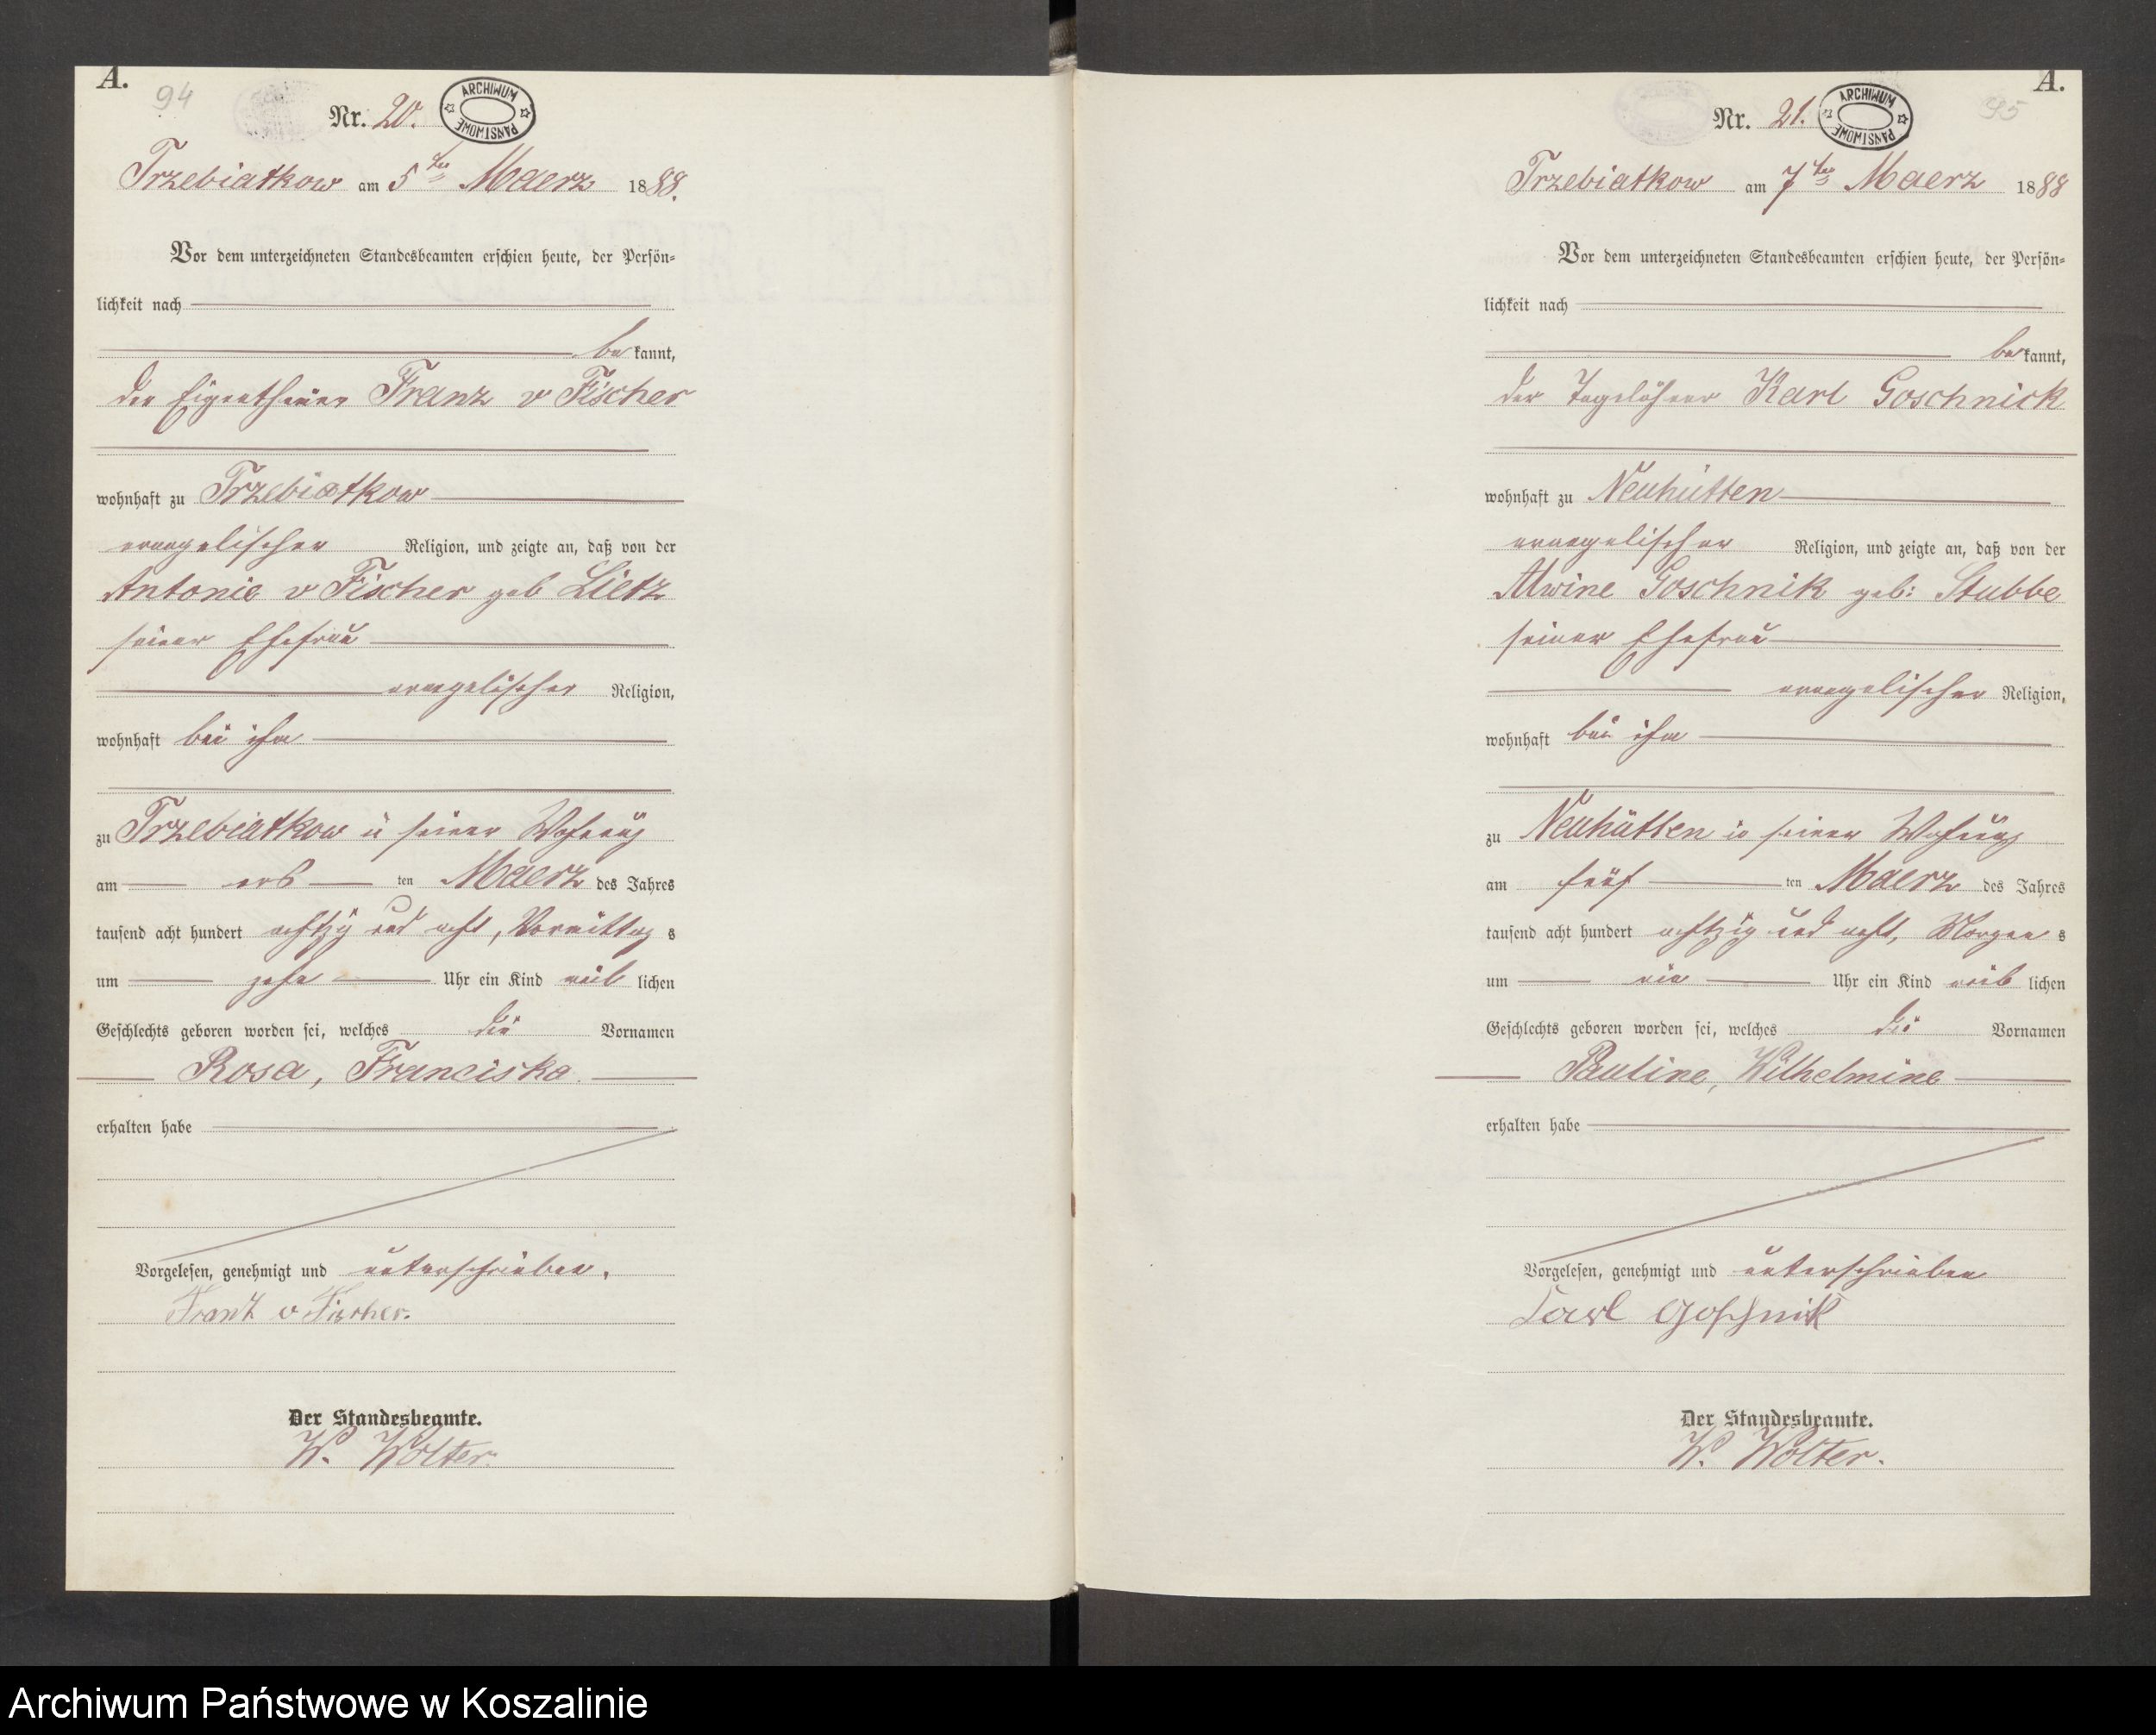 A.
94
Nr. 20.
ARCHIWUM PAŃSTWOWE
Trzebiatkow am 5ten Maerz 1888.
Vor dem unterzeichneten Standesbeamten erschien heute, der Persön-
lichkeit nach
bekannt,
der Eigenthümer Franz v Fischer
wohnhaft zu Trzebiatkow
evangelischer Religion, und zeigte an, daß von der
Antonie v Fischer geb Lietz
seiner Ehefrau
evangelischer Religion,
wohnhaft bei ihm
zu Trzebiatkow in seiner Wohnung
am ten Maerz des Jahres
tausend acht hundert achtzig und acht, Vormittags
um zehn Uhr ein Kind weiblichen
Geschlechts geboren worden sei, welches die Vornamen
Rosa, Franciska
erhalten habe
Vorgelesen, genehmigt und unterschrieben.
Franz v Fischer.
Der Standesbeamte.
W. Wolter.
A.
95
Nr. 21.
ARCHIWUM PAŃSTWOWE
Trzebiatkow am 7ten Maerz 1888
Vor dem unterzeichneten Standesbeamten erschien heute, der Persön-
lichkeit nach
bekannt,
der Tagelöhner Karl Goschnick
wohnhaft zu Neuhütten
evangelischer Religion, und zeigte an, daß von der
Alwine Goschnik geb: Stubbe
seiner Ehefrau
evangelischer Religion,
wohnhaft bei ihm
zu Neuhütten in seiner Wohnung
am fünf ten Maerz des Jahres
tausend acht hundert achtzig und acht, Morgens
um ein Uhr ein Kind weiblichen
Geschlechts geboren worden sei, welches die Vornamen
Pauline, Wilhelmine
erhalten habe
Vorgelesen, genehmigt und unterschrieben
Carl Goschnik
Der Standesbeamte.
W. Wolter.
Archiwum Państwowe w Koszalinie